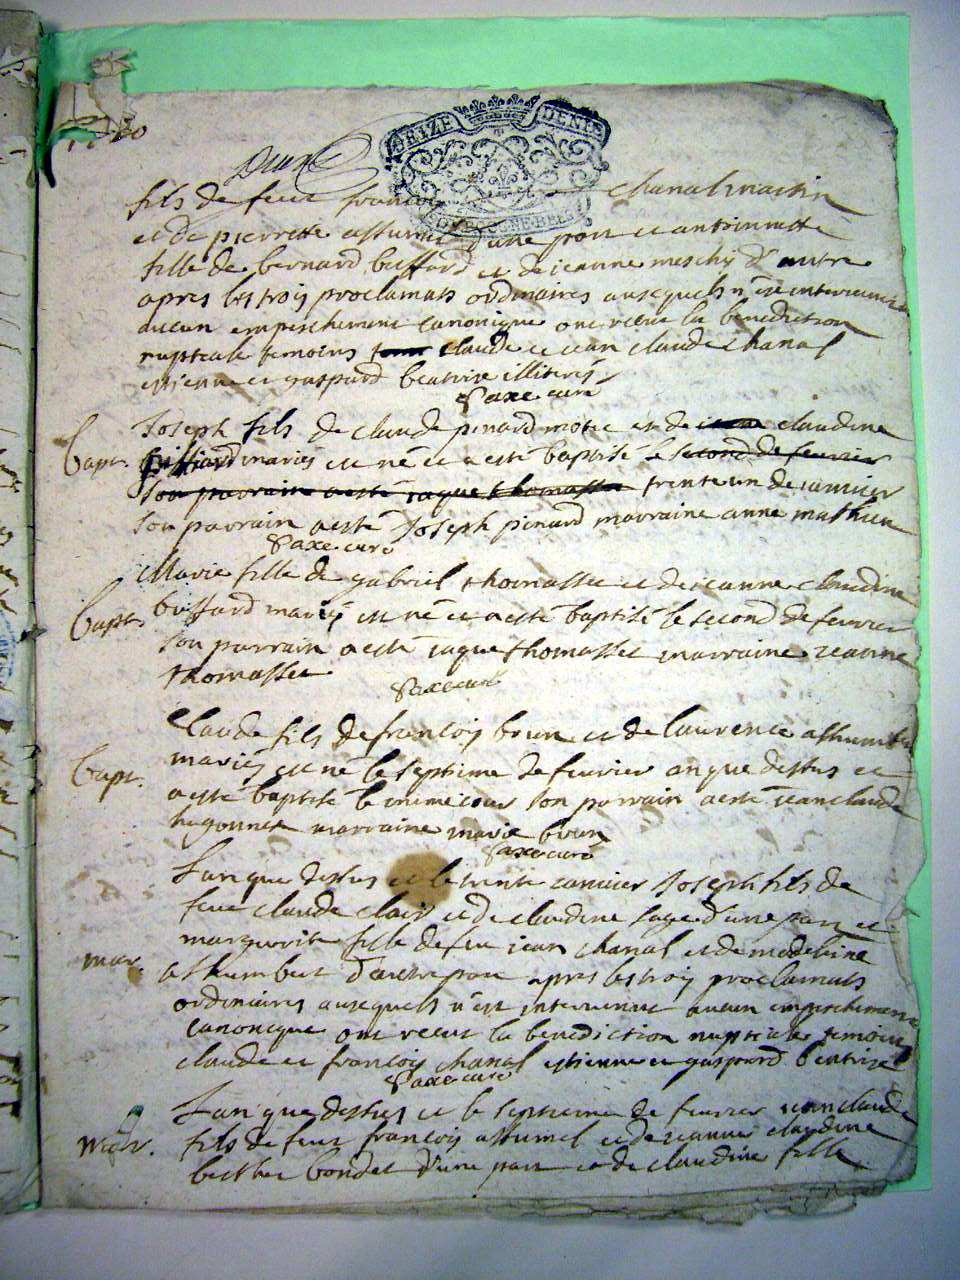 SEIZE DENIERS
fils de feue françois chanal martin
et de pierrette assumel d'une part et antoinette
fille de bernard buffard et de jeanne meschy d'autre
apres les trois proclamats ordinaires ausequels n'est intervenu
aucun empeschement canonique ont receu la benediction
nuptiale temoins claude et jean claude chanal
estienne et gaspard beatrix illiterés
Saxe curé
Bapt. Joseph fils de claude pinard motie et de claudine
mariés est né et a esté baptisé le second de fevrier
son parrain a esté jaque thomasset trente un de janvier
son parrain a esté Joseph pinard marraine anne mathieu
Saxe curé
Bapt. Marie fille de gabriel thomasset et de jeanne claudine
buffard mariés est né et a esté baptisé le second de fevrier
son parrain a esté jaque thomasset marraine jeanne
thomasset
Saxe curé
Bapt. Claude fils de françois brun et de laurence asthumbe
mariés est né le septieme de fevrier an que dessus et
a esté baptisé le mime jour son parrain a esté jean claude
hugonnet marraine marie brun
Saxe curé
L'an que dessus et le trente janvier Joseph fils de
feue claude clair et de claudine sage d'une part et
marguerite fille de feu jean chanal et de madeleine
mar. asthumbert d'autre part apres les trois proclamats
ordinaires ausequels n'est intervenut aucun empeschement
canonique ont receut la benediction nuptiale temoins
claude et françois chanal estienne et gaspard beatrix
Saxe curé
L'an que dessus et le septieme de fevrier jean claude
mar. fils de feue françois assumel et de jeanne claudine
berthet bondet d'une part et de claudine fille